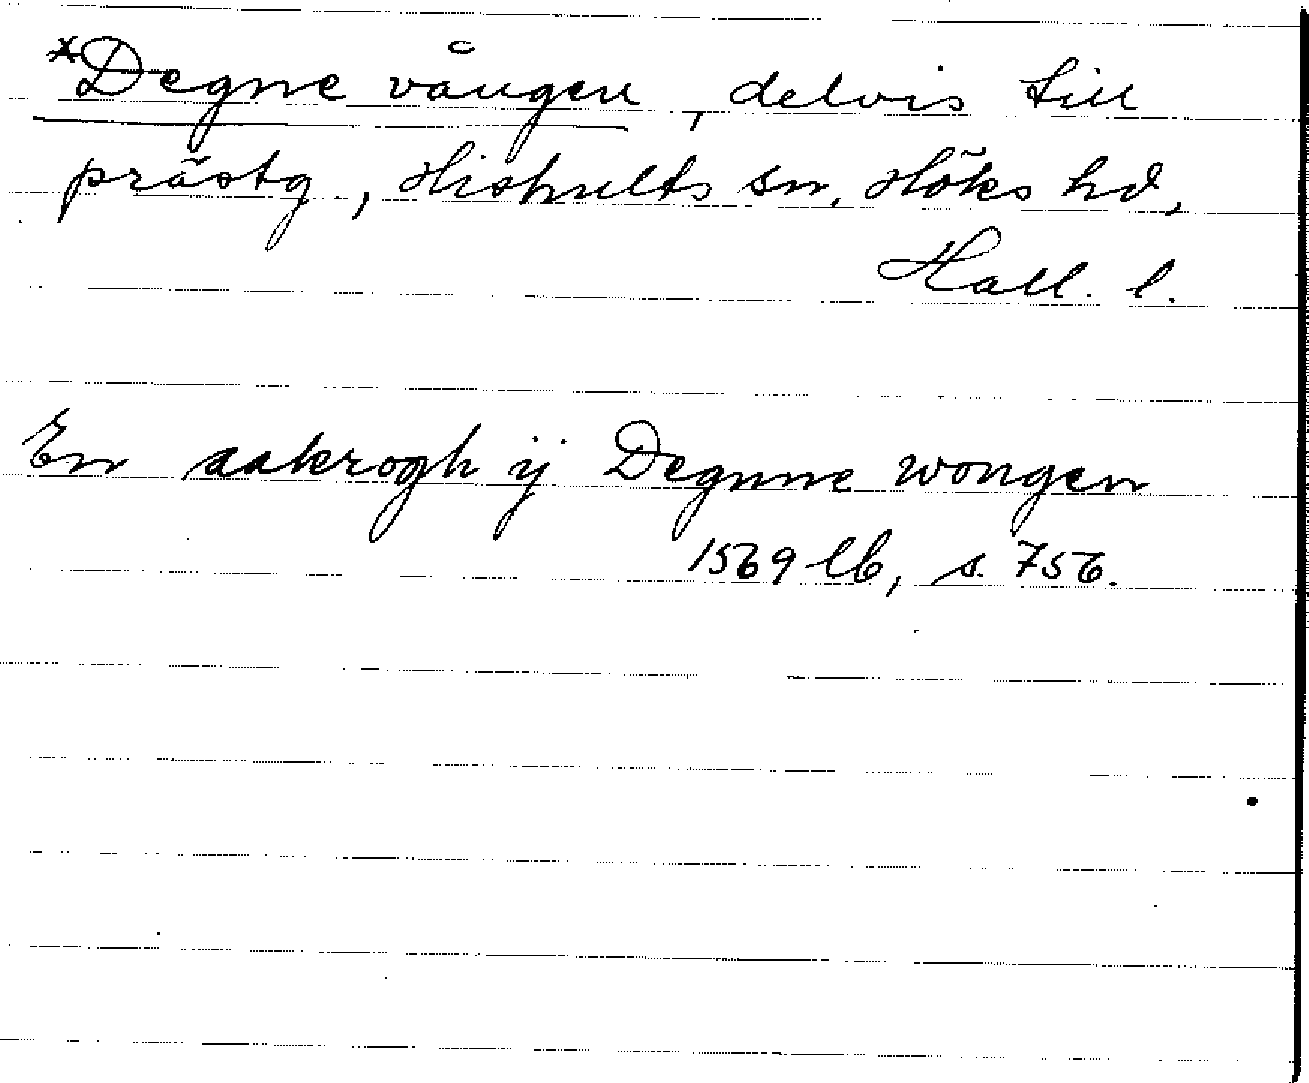 *Degne vången, delvis till
prästg, Hishults sn, Höks hd,
Hall. l.
En aakrogh ij Degnne wongen
1569 lb, s. 756.